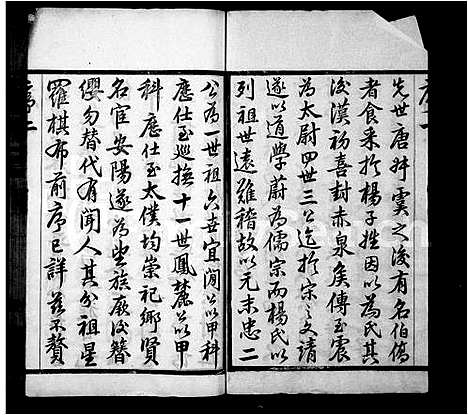 序二
先世唐叔虞之後有名伯僑
者食采於楊子姓因以為氏其
後漢初喜封赤泉侯傳至震
為太尉四世三公迄於宋之文靖
遂以道學蔚為儒宗而楊氏以
列祖世遠難稽故以元末忠二
公為一世祖六世宜閒公以甲科
應仕至巡撫十一世鳳麓公以甲
科應仕至太僕均崇祀鄉賢
名宦安陽遂為望族厥後簪
纓勿替代有聞人其分祖星
羅棋布前序已詳茲不贅
序二